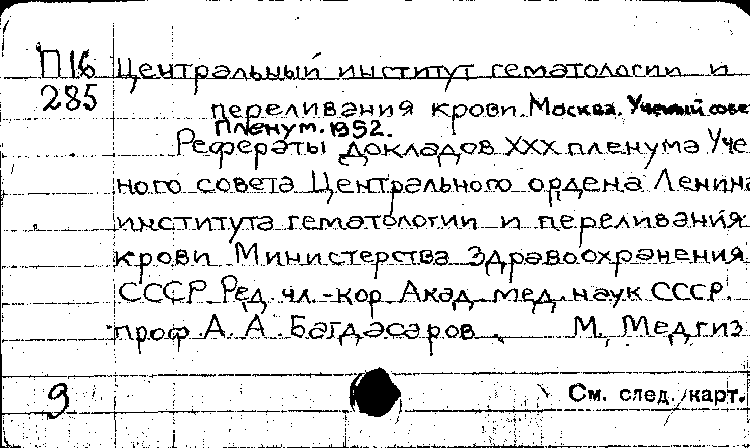 П16 Центральный институт гематологии и
285 переливания крови. Москва. Ученый сове
Пленум. 1952.
Рефераты докладов XXX пленума Уче
ного совета Центрального ордена Ленина
института гематологии и переливания
крови Министерства здравоохранения
СССР. Ред. чл.-кор. Акад. мед. наук СССР.
проф. А. А. Багдасаров. М, Медгиз
9 См. след. карт.